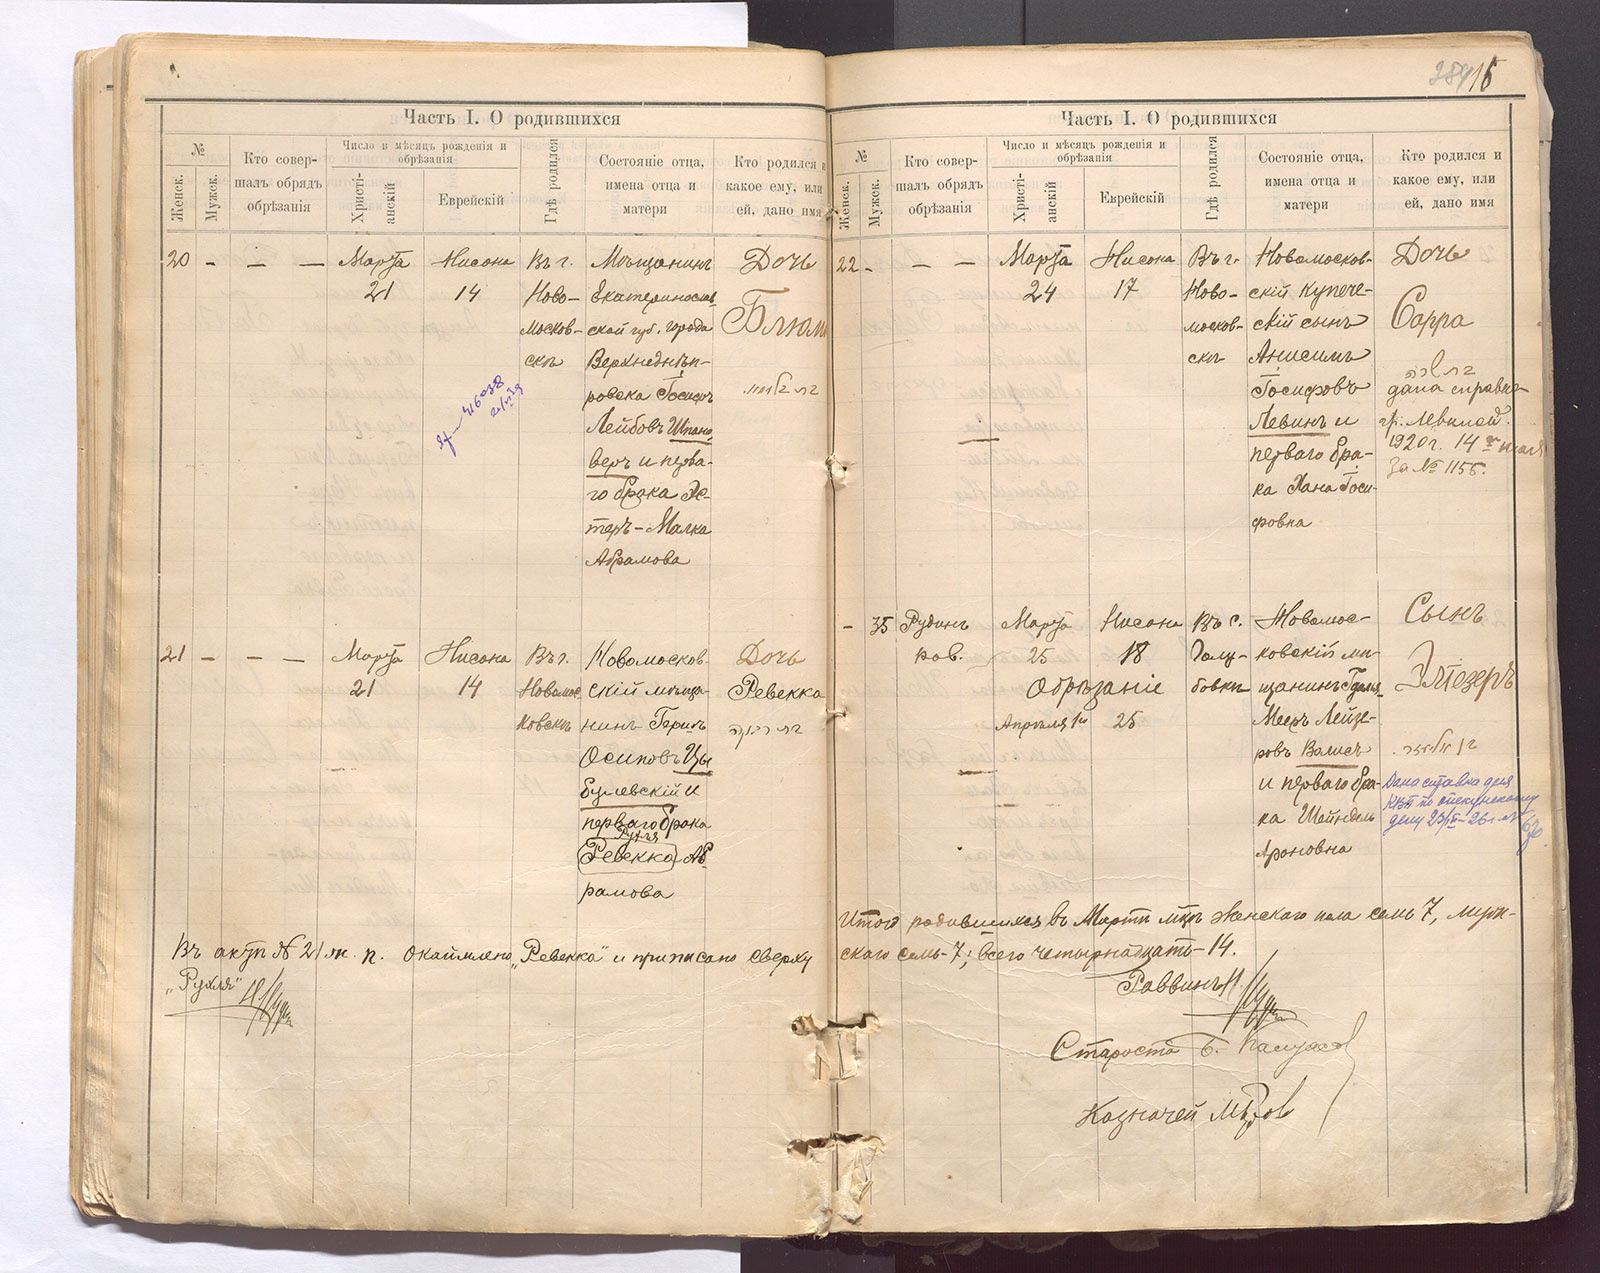 Часть I. О родившихся
№
Женск.
Мужск.
Кто совер-
шалъ обрядъ
обрѣзанія
Число и мѣсяцъ рожденія и
обрѣзанія
Христі-
анскій
Еврейскій
Гдѣ родился
Состояніе отца,
имена отца и
матери
Кто родился и
какое ему, или
ей, дано имя
20 - - -
Марта
21
Нисона
14
Въ г.
Ново-
москов-
скѣ
Мѣщанинъ
Екатеринослав
ской губ. города
Верхнеднѣп-
ровска Іосифъ
Лейбовъ Шпанo
веръ и перва-
го брака Эс-
теръ-Малка
Абрамова
Дочь
Блюма
21 - - -
Марта
21
Нисона
14
Въ г.
Новомос
ковскѣ
Новомосков-
скій мѣща-
нинъ Герцъ
Осиповъ Цы
булевскій и
перваго брака
Рухля
Ревекка Аб
рамова
Дочь
Ревекка
בת רבקה
Въ актѣ № 21 ж. п. окаймлено „Ревекка" и приписано сверху
„Рухля"
15
Часть I. О родившихся
№
Женск.
Мужск.
Кто совер-
шалъ обрядъ
обрѣзанія
Число и мѣсяцъ рожденія и
обрѣзанія
Христі-
анскій
Еврейскій
Гдѣ родился
Состояніе отца,
имена отца и
матери
Кто родился и
какое ему, или
ей, дано имя
22 - - - -
Марта
24
Нисона
17
Въ г.
Ново-
москов-
скѣ
Новомосков-
скій купече-
скій сынъ
Анисимъ
Іосифовъ
Левинъ и
перваго бра-
ка Хана Іоси-
фовна
Дочь
Сарра
בת שרה
дана справка
гр.
1920 г. 14 июля
За № 1156.
- 35
Рудинъ
рав.
Марта
25
Нисона
18
Обрѣзаніе
Апрѣля 1го 25
Въ с.
Голу-
бовкѣ
Новомос-
ковскій мѣ-
щанинъ
Мееръ Лейзе-
ровъ Валисъ
и перваго бра-
ка Шейндель
Ароновна
Сынъ
Эліозеръ
Дана справка для
по опекунскому
делу
Итого родившихся въ Мартѣ м-цѣ женскаго пола семь 7, муж-
скаго семь-7; всего четырнадцать-14.
Раввинъ
Староста Б.
Казначей